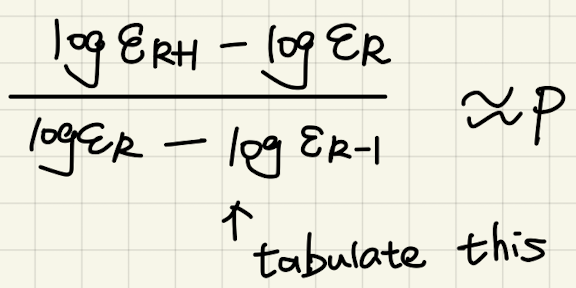 log ε_{k+1} − log ε_k
log ε_k − log ε_{k-1}
≈ p
↑
tabulate this